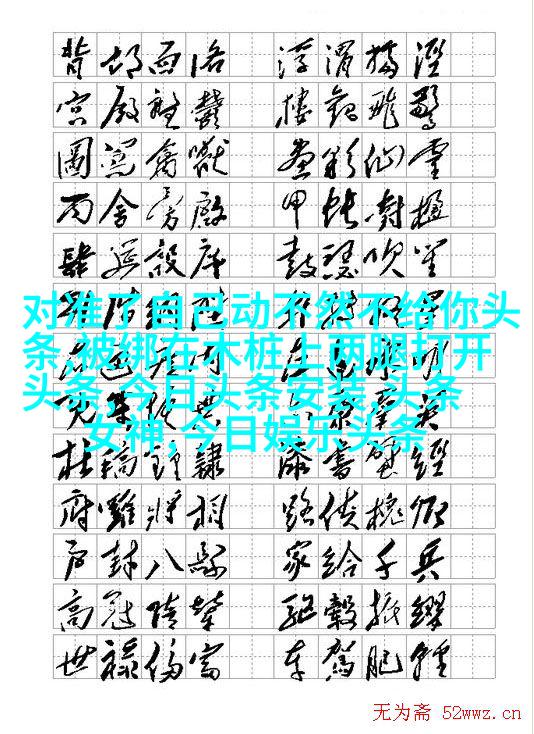 背邙面洛 浮渭據涇
宮殿盤鬱 樓觀飛驚
圖寫禽獸 畫彩仙靈
丙舍傍啟 甲帳對楹
肆筵設席 鼓瑟吹笙
对准了自己动不然不给你头
条,被绑在木桩上两腿打开
头条,今日头条安装,头条
女神,今日娱乐头条
杜稿鍾隸 漆書壁經
府羅將相 路俠槐卿
戶封八縣 家給千兵
高冠陪輦 驅轂振纓
世祿侈富 車駕肥輕
无为斋 52wwz.cn